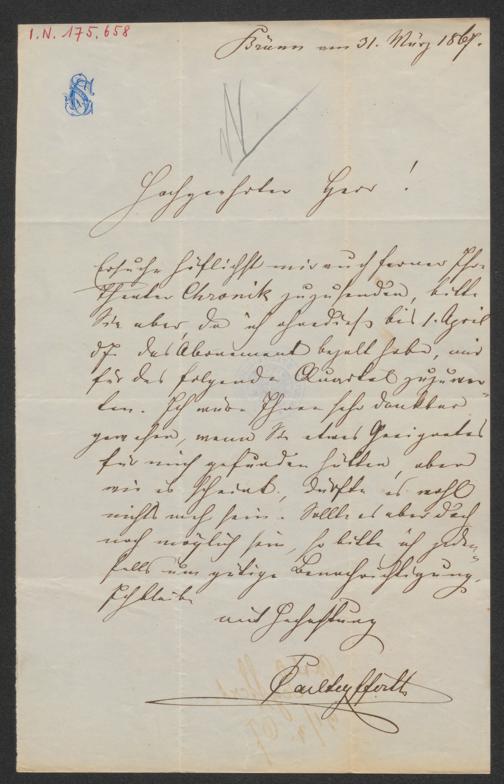 I.N. 175.658
Brünn am 31. März 1867.
Hochgeehrter Herr!
Ersuche höflichst mir auch ferner Ihre
Theater Chronik zuzusenden, bitte
Sie aber, da ich ohnedieß bis 1. April
dJ. das Abonement bezalt habe, mir
für das folgende Quartal zuzuwar-
ten. Ich wäre Ihnen sehr dankbar
gewesen, wenn Sie etwas Geeignetes
für mich gefunden hätten, aber
wie es scheint, dürfte es wohl
nichts mehr sein. Sollte es aber doch
noch möglich sein, so bitte ich jeden-
falls um gütige Benachrichtigung.
Ich bleibe
mit Hochachtung